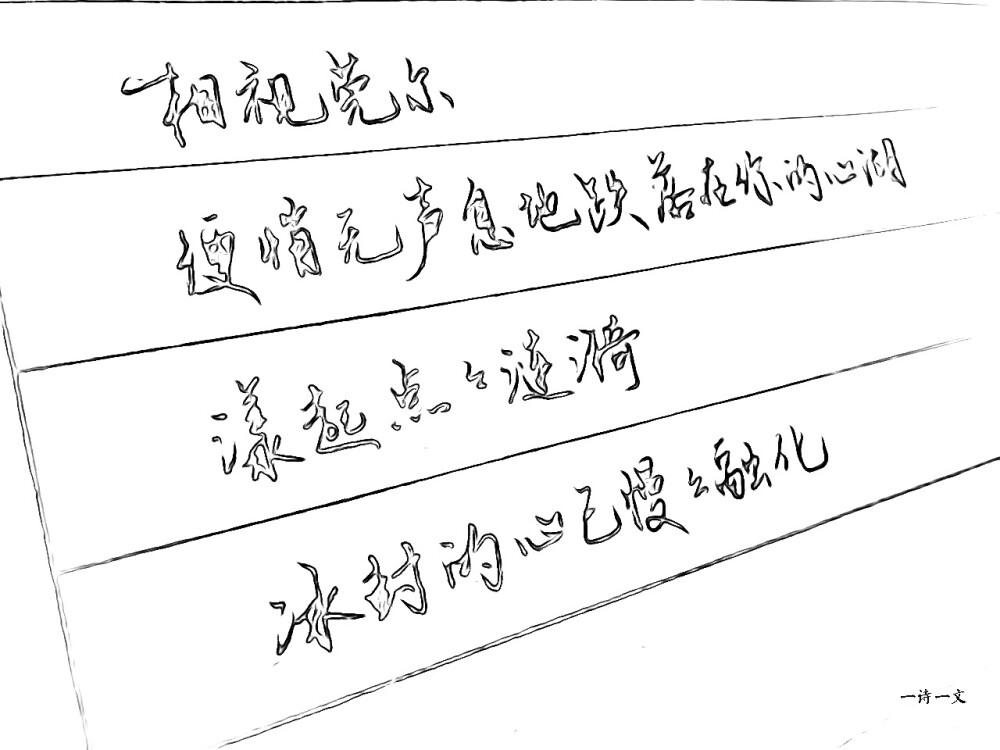 相视莞尔
便悄无声息地跌落在你的心湖
漾起点々涟漪
冰封的心已慢々融化
一诗一文